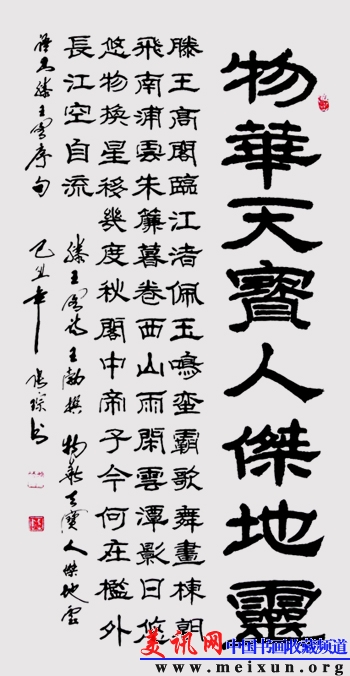 物華天寶人傑地靈
滕王高閣臨江渚佩玉鳴蛮霸歌舞畫棟朝
飛南浦雲朱簾暮卷西山雨閑雲潭影日悠
悠物換星移幾度秋閣中帝子今何在檻外
長江空自流
滕王阁诗王勃撰物華天寶人傑地靈
滕王阁序句
己丑年
书
美讯网中国书画收藏频道
www.meixun.org